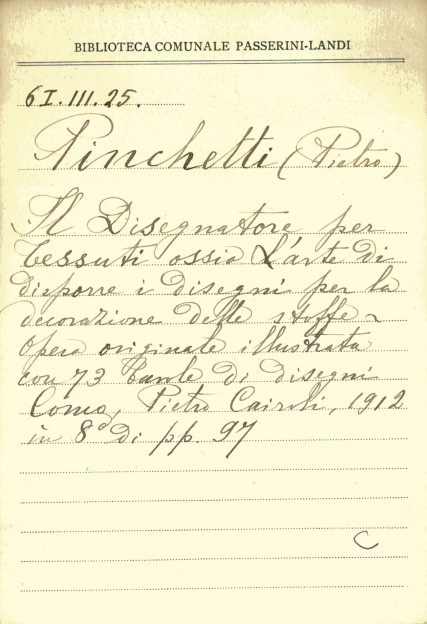 BIBLIOTECA COMUNALE PASSERINI-LANDI
6I.III.25.
Pinchetti (Pietro)
Il Disegnatore per
tessuti ossia L'arte di
disporre i disegni per la
decorazione delle stoffe ~
Opera originale illustrata
con 73 tavole di disegni
Como, Pietro Cairoli, 1912
in 8° di pp. 97
C